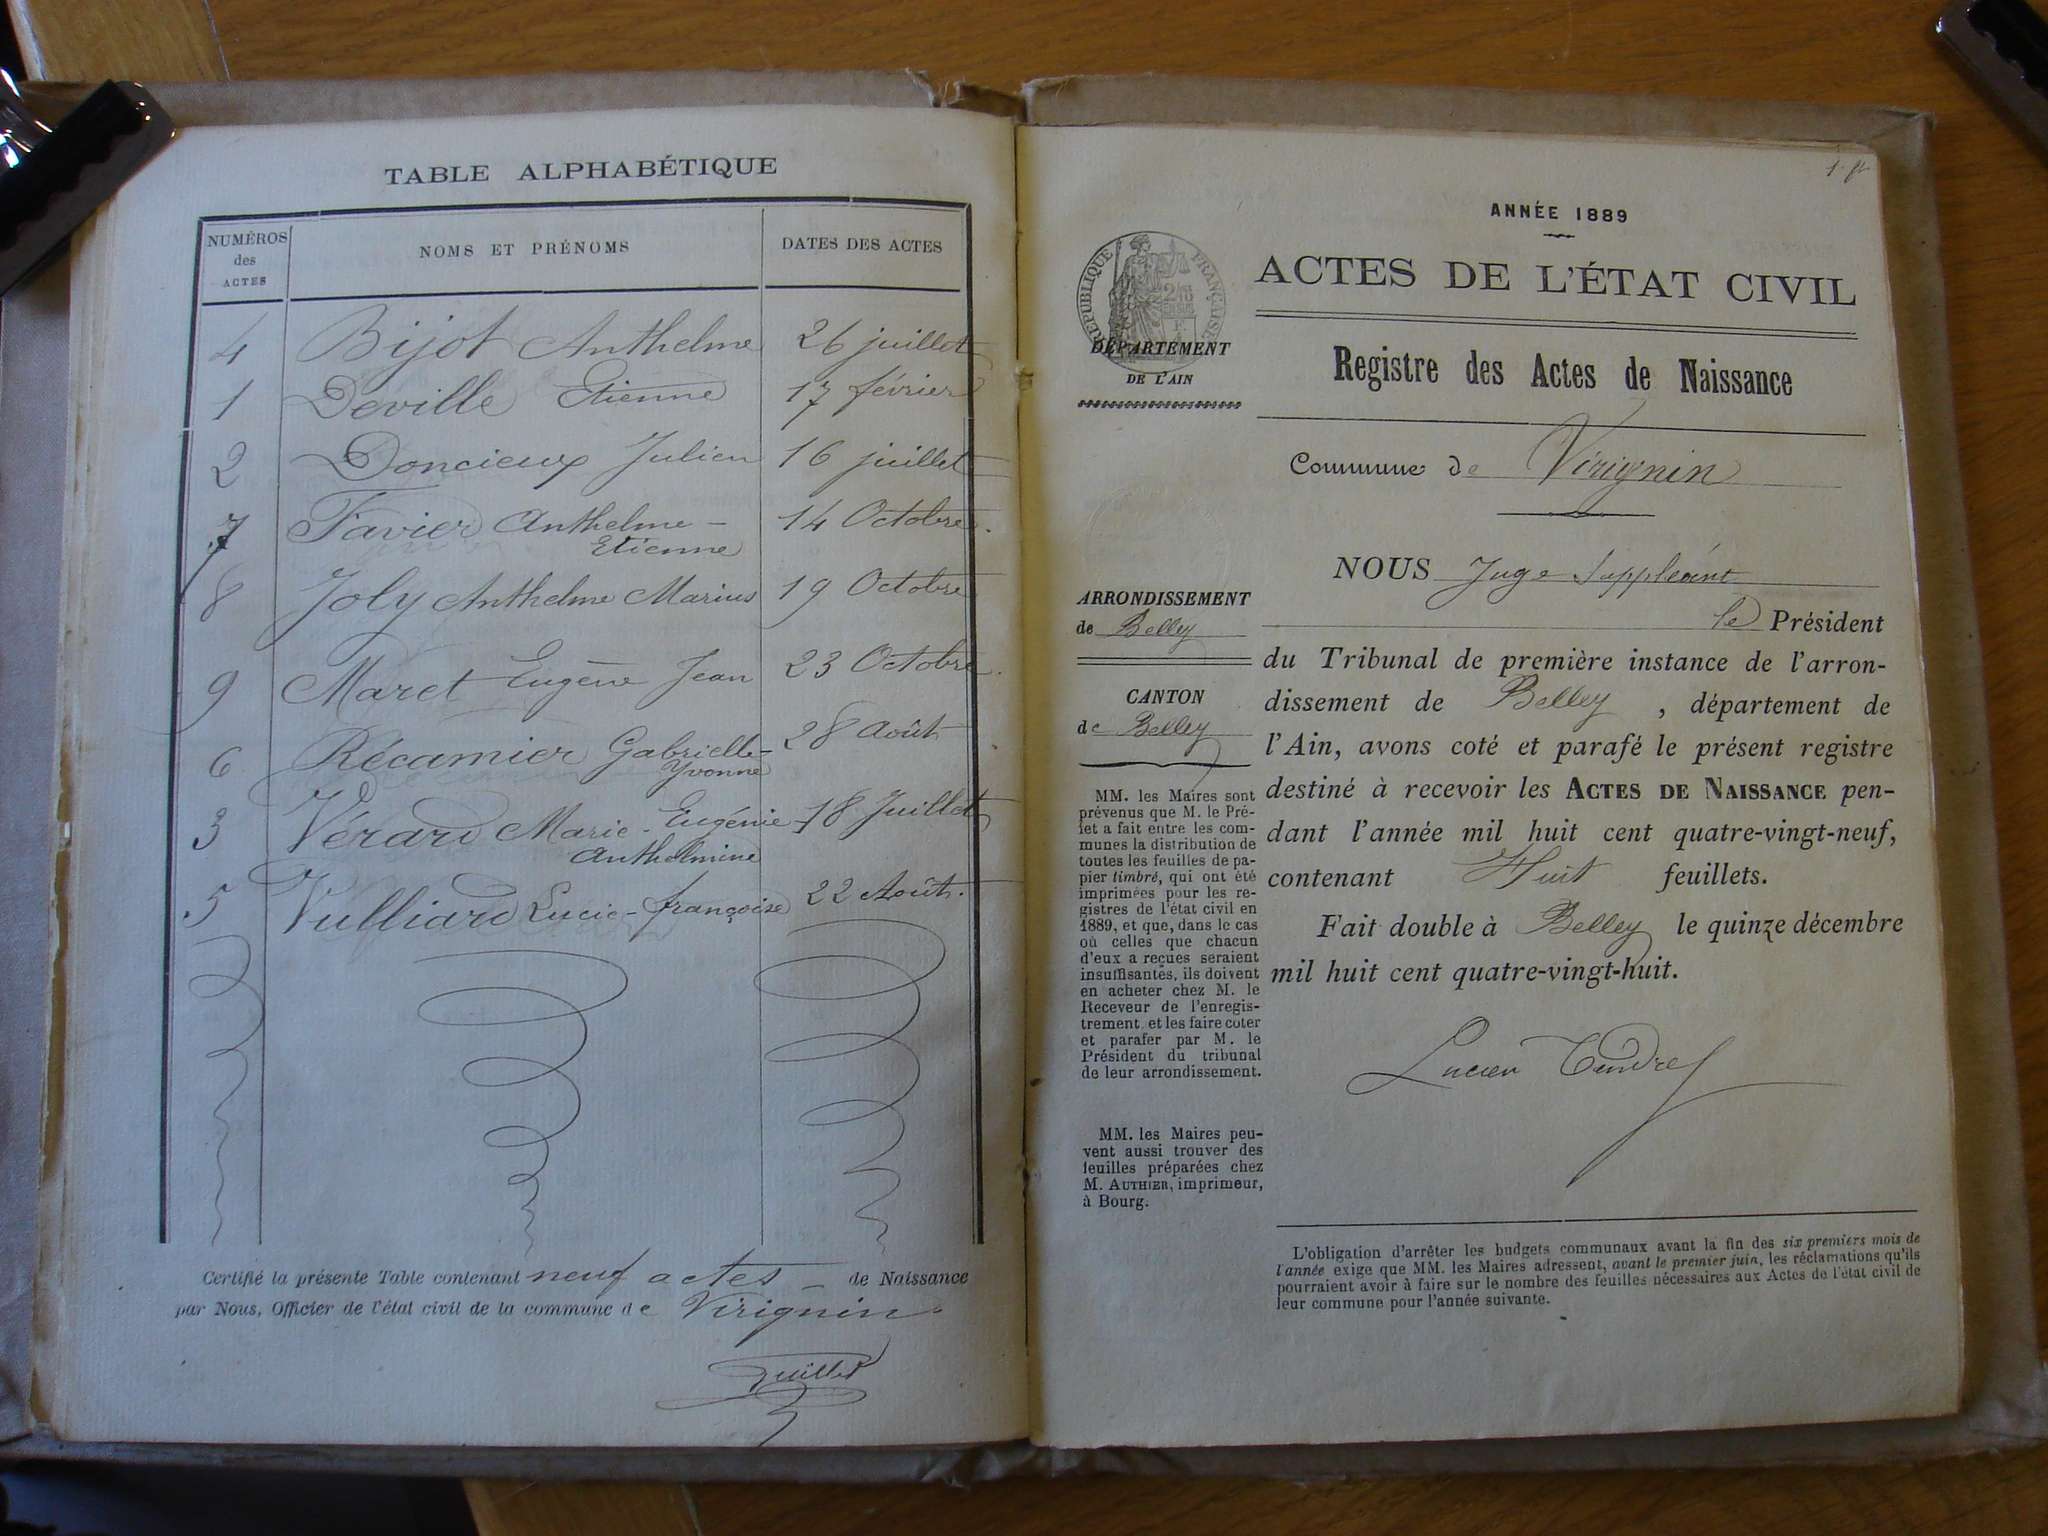 TABLE ALPHABÉTIQUE
NUMÉROS des ACTES NOMS ET PRÉNOMS DATES DES ACTES
4 Bijot Anthelme 26 juillet
1 Deville Etienne 17 février
2 Doncieux Julien 16 juillet
7 Favier Anthelme - 14 Octobre.
Etienne
8 Joly Anthelme Marius 19 Octobre
9 Maret Eugène Jean 23 Octobre.
6 Récamier Gabrielle- 28 Août
Yvonne
3 Vérard Marie-Eugénie- 18 Juillet
Anthelmine
5 Vulliard Lucie-françoise 22 Août.
Certifié la présente Table contenant neuf actes - de Naissance
par Nous, Officier de l'état civil de la commune de Virignin.
1. ft
ANNÉE 1889
RÉPUBLIQUE FRANÇAISE
ACTES DE L'ÉTAT CIVIL
DÉPARTEMENT
DE L'AIN
Registre des Actes de Naissance
Commune de Virignin
ARRONDISSEMENT
de Belley
CANTON
de Belley
MM. les Maires sont
prévenus que M. le Pré-
fet a fait entre les com-
munes la distribution de
toutes les feuilles de pa-
pier timbré, qui ont été
imprimées pour les re-
gistres de l'état civil en
1889, et que, dans le cas
où celles que chacun
d'eux a reçues seraient
insuffisantes, ils doivent
en acheter chez M. le
Receveur de l'enregis-
trement et les faire coter
et parafer par M. le
Président du tribunal
de leur arrondissement.
MM. les Maires peu-
vent aussi trouver des
feuilles préparées chez
M. AUTHIER, imprimeur,
à Bourg.
NOUS Juge Suppléant
le Président
du Tribunal de première instance de l'arron-
dissement de Belley, département de
l'Ain, avons coté et parafé le présent registre
destiné à recevoir les ACTES DE NAISSANCE pen-
dant l'année mil huit cent quatre-vingt-neuf,
contenant Huit feuillets.
Fait double à Belley le quinze décembre
mil huit cent quatre-vingt-huit.
Lucien Tendret
L'obligation d'arrêter les budgets communaux avant la fin des six premiers mois de
l'année exige que MM. les Maires adressent, avant le premier juin, les réclamations qu'ils
pourraient avoir à faire sur le nombre des feuilles nécessaires aux Actes de l'état civil de
leur commune pour l'année suivante.